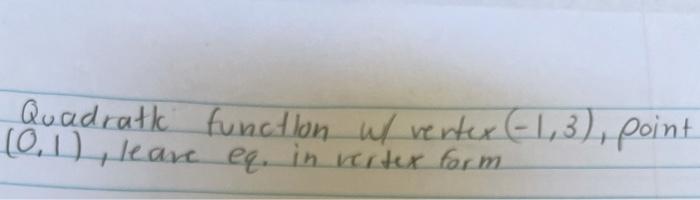 Quadratic function w/ vertex (-1,3), point
(0,1), leave eq. in vertex form